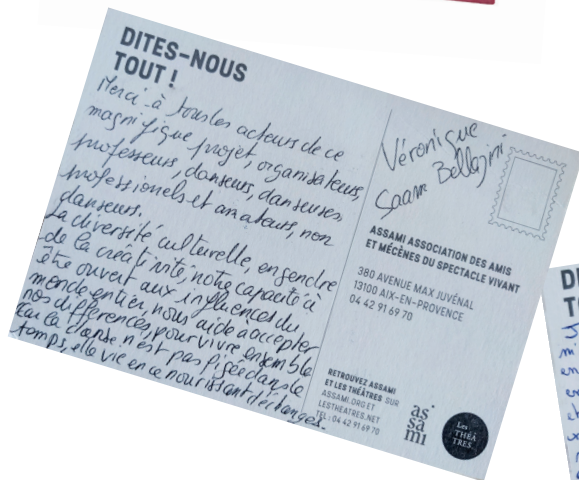 DITES-NOUS
TOUT !
Merci à tous les acteurs de ce
magnifique projet, organisateurs,
professeurs, danseurs, danseuses,
professionels et amateurs, non
danseurs.
La diversité culturelle, engendre
de la créativité, notre capacité à
être ouvert aux influences du
monde entier, nous aide à accepter
nos différences, pour vivre ensemble
car la danse n'est pas figée dans le
temps, elle vie en ce nourrissant d'échanges.
Véronique
Saam Bellojini
ASSAMI ASSOCIATION DES AMIS
ET MÉCÈNES DU SPECTACLE VIVANT
380 AVENUE MAX JUVÉNAL
13100 AIX-EN-PROVENCE
04 42 91 69 70
RETROUVEZ ASSAMI
ET LES THÉÂTRES SUR
ASSAMI.ORG ET
LESTHEATRES.NET
TÉL : 04 42 91 69 70
as
sa
mi
Les
THÉÂ
TRES